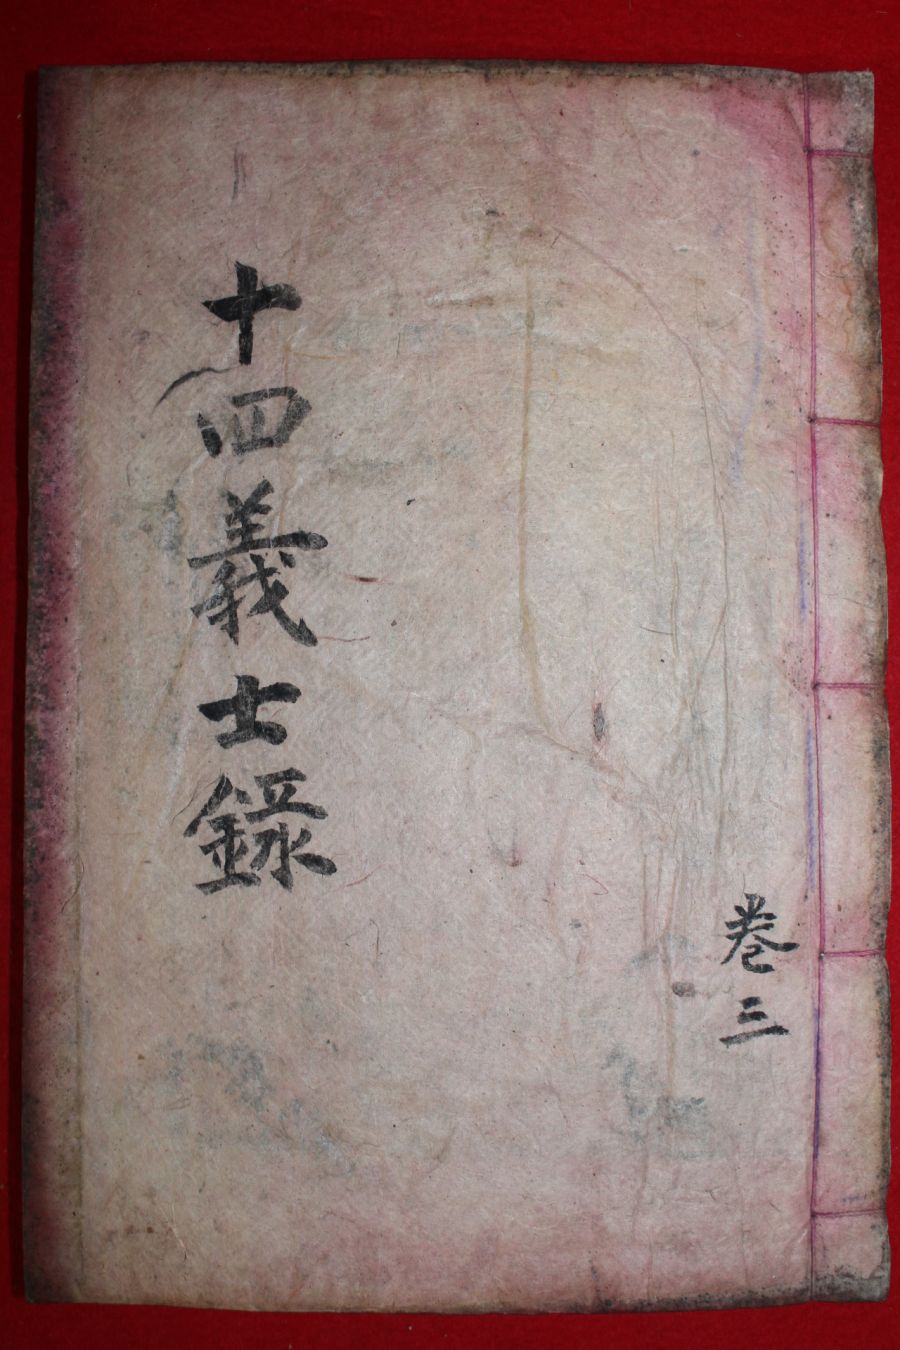 十四義士錄
卷三